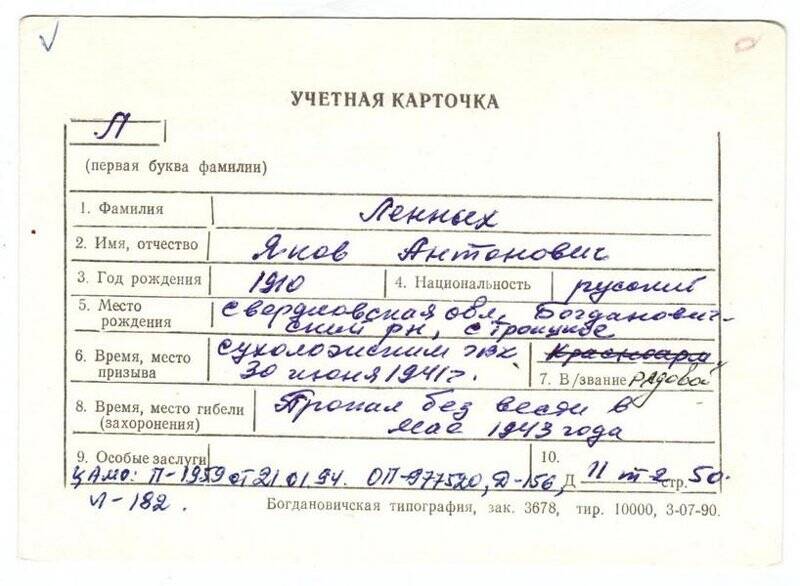 УЧЕТНАЯ КАРТОЧКА
Л
(первая буква фамилии)
1. Фамилия Ленных
2. Имя, отчество Яков Антонович
3. Год рождения 1910 4. Национальность русский
5. Место рождения Свердловская обл, Богданович-
ский рн, с Троицкое
6. Время, место призыва Сухоложским рвк
30 июня 1941г.
Красноарм
7. В/звание рядовой
8. Время, место гибели (захоронения) Пропал без вести в
мае 1943 года
9. Особые заслуги 10.
ЦАМО: П-1959 от 21.01.94. ОП-977520, Д-156, Д 11 т 2 стр. 50.
Л-182.
Богдановичская типография, зак. 3678, тир. 10000, 3-07-90.